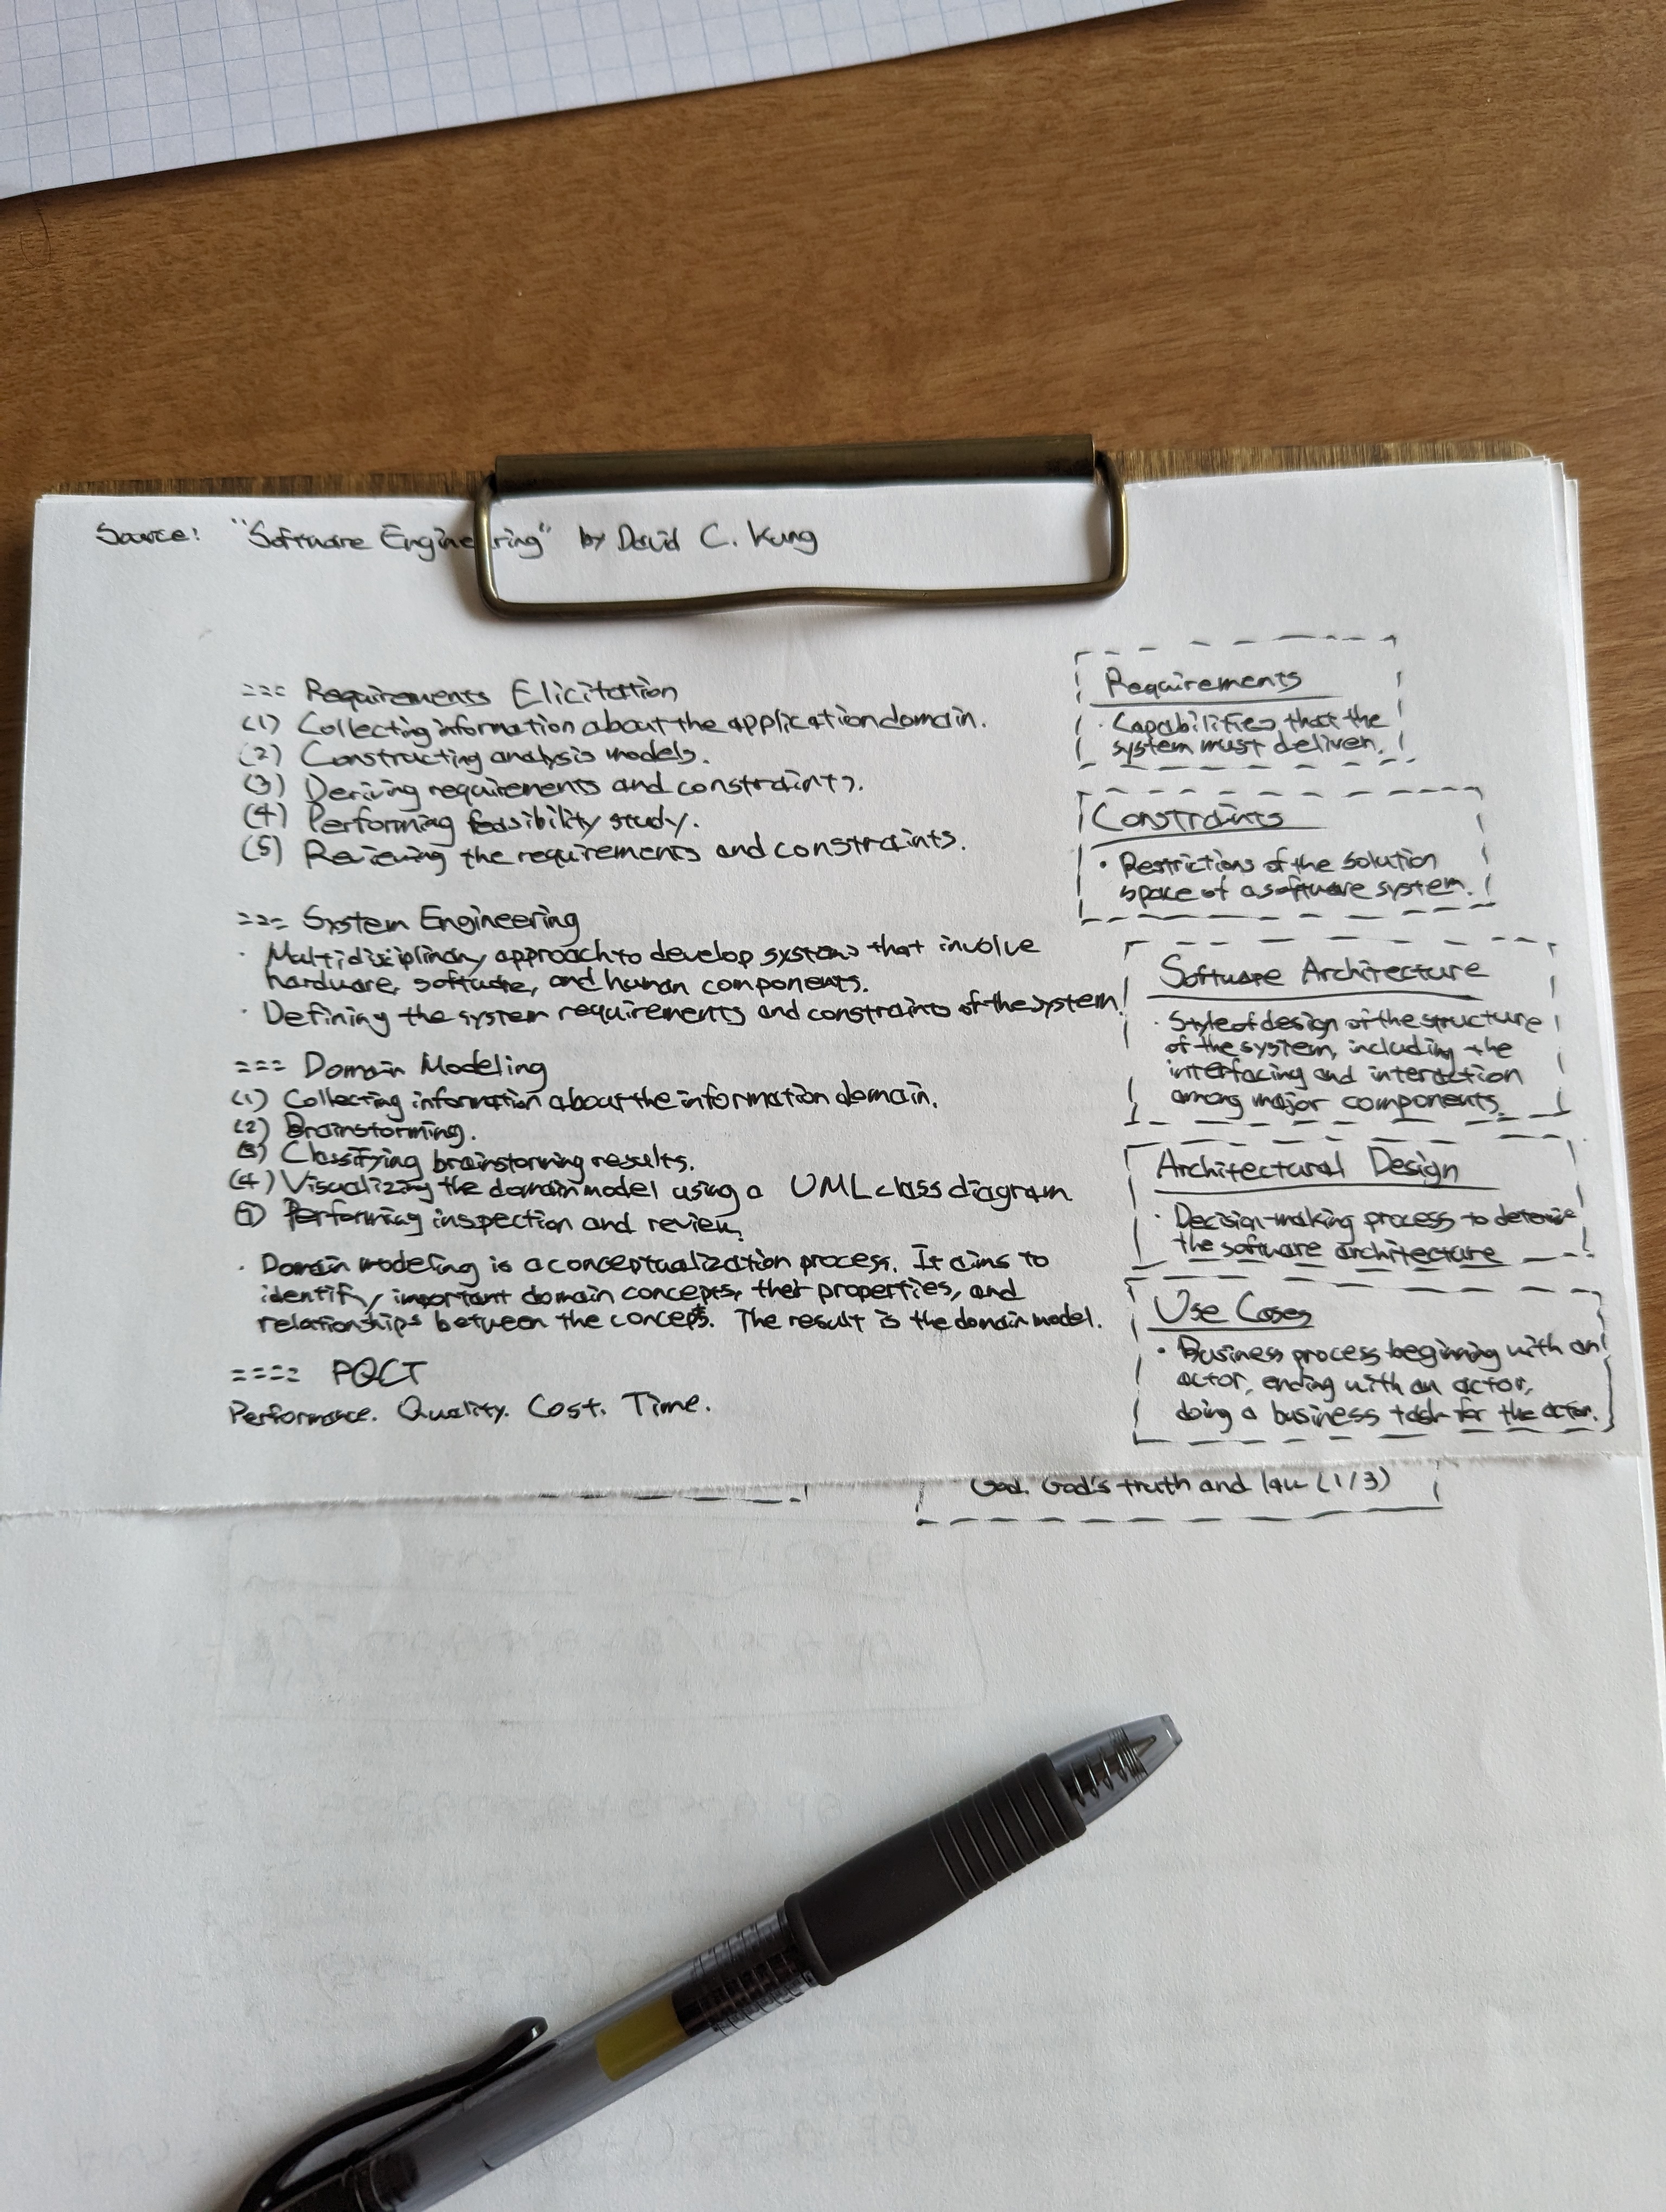 Source: "Software Engineering" by David C. Kung
=== Requirements Elicitation
(1) Collecting information about the application domain.
(2) Constructing analysis models.
(3) Deriving requirements and constraints.
(4) Performing feasibility study.
(5) Reviewing the requirements and constraints.
=== System Engineering
· Multidisciplinary approach to develop systems that involve
hardware, software, and human components.
· Defining the system requirements and constraints of the system.
=== Domain Modeling
(1) Collecting information about the information domain.
(2) Brainstorming.
(3) Classifying brainstorming results.
(4) Visualizing the domain model using a UML class diagram.
(5) Performing inspection and review.
· Domain modeling is a conceptualization process. It aims to
identify important domain concepts, their properties, and
relationships between the concepts. The result is the domain model.
==== PQCT
Performance. Quality. Cost. Time.
Requirements
· Capabilities that the
system must deliver.
Constraints
· Restrictions of the solution
space of a software system.
Software Architecture
· Style of design of the structure
of the system, including the
interfacing and interaction
among major components.
Architectural Design
· Decision-making process to determine
the software architecture
Use Cases
· Business process beginning with an
actor, ending with an actor,
doing a business task for the actor.
God. God's truth and law (1/3)